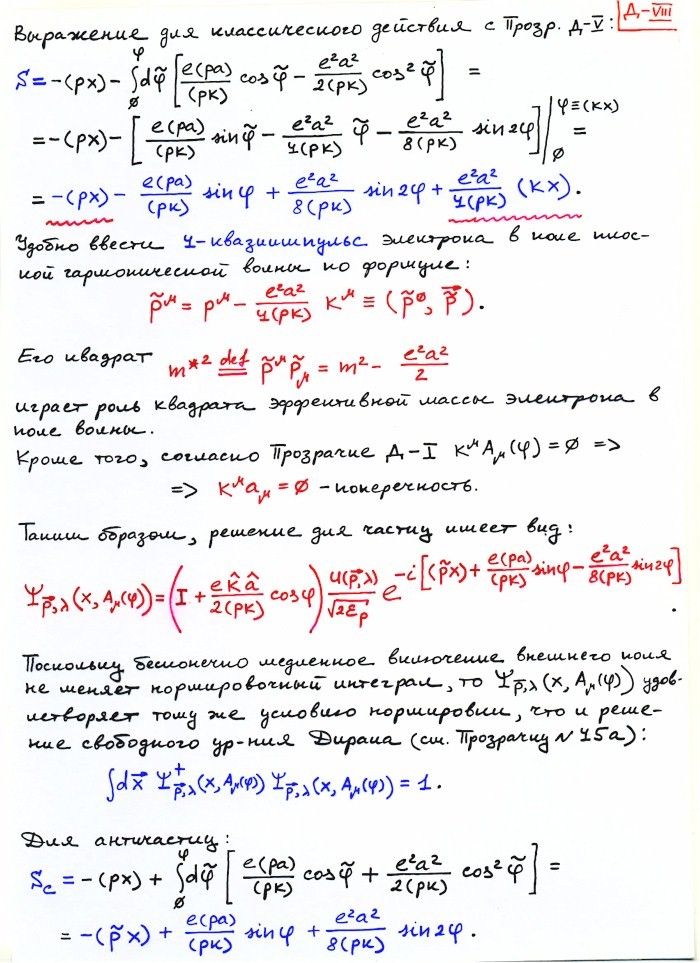 Выражение для классического действия с Прозр. Д-V: Д-VIII
S = -(px) - ∫₀^φ dφ̃ [ e(pa)/(pk) cos φ̃ - e²a²/2(pk) cos² φ̃ ] =
= -(px) - [ e(pa)/(pk) sin φ̃ - e²a²/4(pk) φ̃ - e²a²/8(pk) sin 2φ̃ ] |₀^{φ≡(kx)} =
= -(px) - e(pa)/(pk) sin φ + e²a²/8(pk) sin 2φ + e²a²/4(pk) (kx).
Удобно ввести 4-квазиимпульс электрона в поле плос-
кой гармонической волны по формуле:
p̃^μ = p^μ - e²a²/4(pk) k^μ ≡ (p̃⁰, p̃⃗).
Его квадрат m*² def= p̃^μ p̃_μ = m² - e²a²/2
играет роль квадрата эффективной массы электрона в
поле волны.
Кроме того, согласно Прозрачке Д-I k^μ A_μ(φ) = 0 =>
=> k^μ a_μ = 0 - поперечность.
Таким образом, решение для частиц имеет вид:
Ψ_{p⃗,λ}(x, A_μ(φ)) = ( I + e k̂ â/2(pk) cos φ ) u(p⃗,λ)/√(2ε_p) e^{-i[(p̃x) + e(pa)/(pk) sin φ - e²a²/8(pk) sin 2φ]}.
Поскольку бесконечно медленное включение внешнего поля
не меняет нормировочный интеграл, то Ψ_{p⃗,λ}(x, A_μ(φ)) удов-
летворяет тому же условию нормировки, что и реше-
ние свободного ур-ния Дирака (см. Прозрачку N 45а):
∫dx⃗ Ψ⁺_{p⃗,λ}(x, A_μ(φ)) Ψ_{p⃗,λ}(x, A_μ(φ)) = 1.
Для античастиц:
S_c = -(px) + ∫₀^φ dφ̃ [ e(pa)/(pk) cos φ̃ + e²a²/2(pk) cos² φ̃ ] =
= -(p̃x) + e(pa)/(pk) sin φ + e²a²/8(pk) sin 2φ.